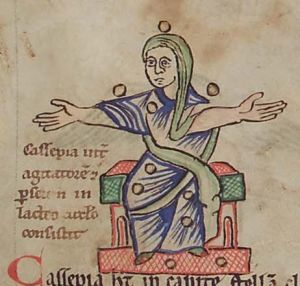 Cassepia int̄
agitatorē ⁊
ꝑseu n in
lacteo circlo
consistit
Cassepia hт̄ in capite stellā